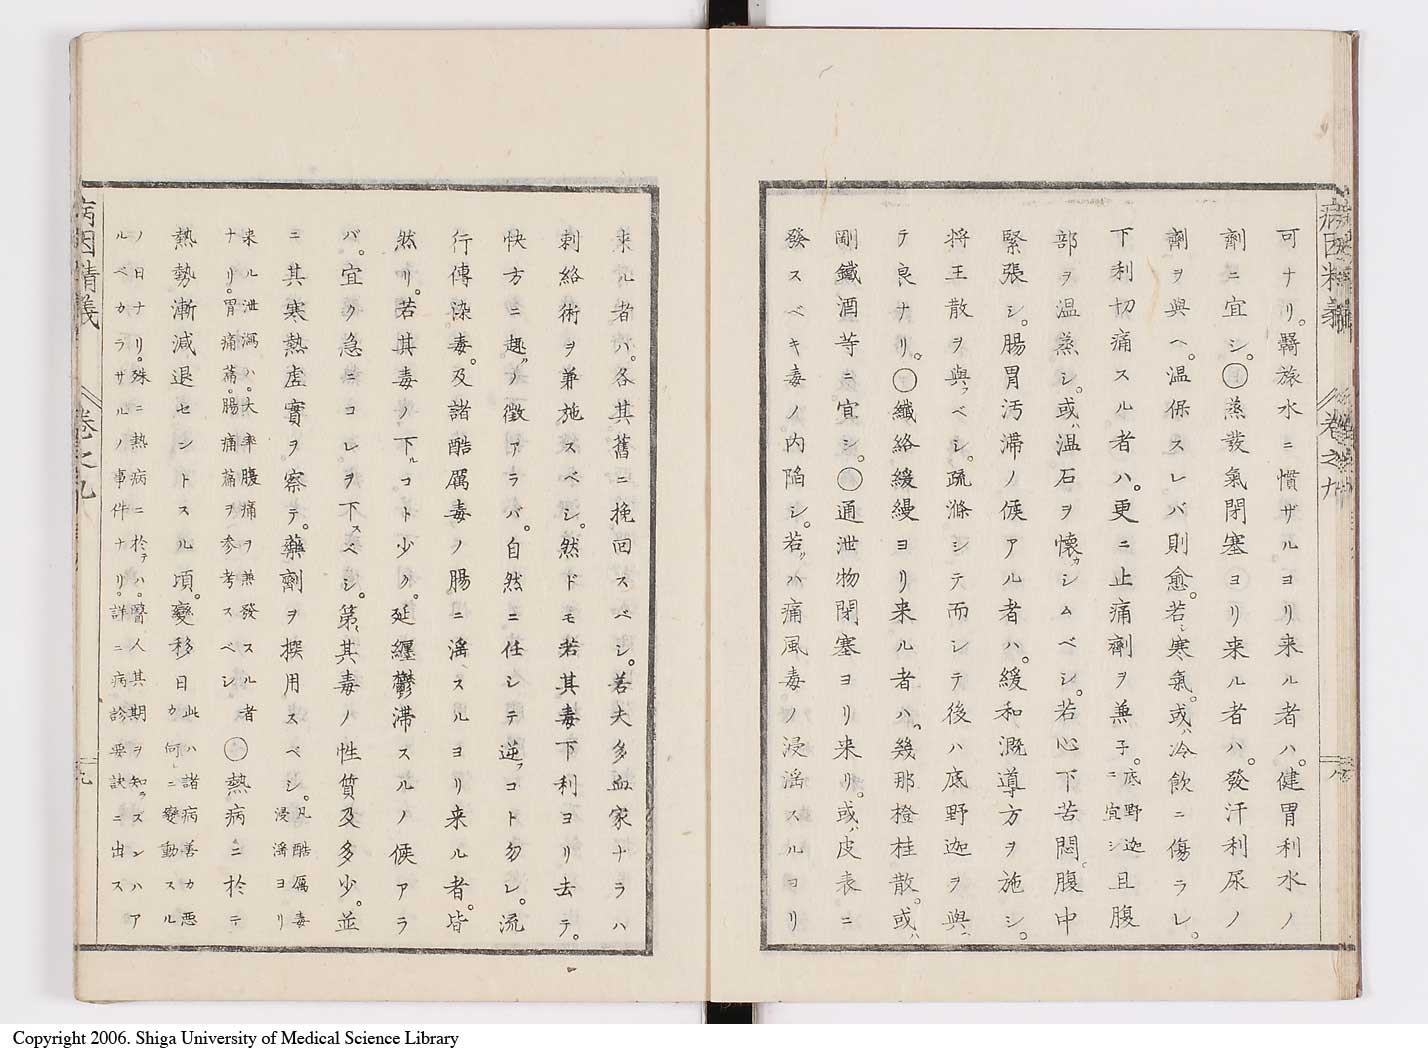 病因精義 卷之九
可ナリ。羇旅水ニ慣ザルヨリ来ル者ハ。健胃利水ノ
劑ニ宜シ。〇蒸發氣閉塞ヨリ来ル者ハ。發汗利尿ノ
劑ヲ與ヘ。温保スレバ則愈。若シ寒氣。或ハ冷飲ニ傷ラレ。
下利切痛スル者ハ。更ニ止痛劑ヲ兼子。底野迦ニ宜シ且腹
部ヲ温蒸シ。或ハ温石ヲ懷カシムベシ。若心下苦悶。腹中
緊張シ。腸胃汚滞ノ候アル者ハ。緩和溉導方ヲ施シ。
将王散ヲ與フベシ。疏滌シテ而シテ後ハ底野迦ヲ與ヘ
テ良ナリ。〇纖絡緩縵ヨリ来ル者ハ。幾那橙桂散。或ハ
剛鐵酒等ニ宜シ。〇通泄物閉塞ヨリ来リ。或ハ皮表ニ
發スベキ毒ノ内陥シ。若クハ痛風毒ノ浸淫スルヨリ
来ル者ハ。各其舊ニ挽回スベシ。若夫多血家ナラハ
刺絡術ヲ兼施スベシ。然ドモ若其毒下利ヨリ去テ。
快方ニ趣クノ徴アラバ。自然ニ任シテ逆フコト勿レ。流
行傳染毒。及諸酷厲毒ノ腸ニ淫スルヨリ来ル者。皆
然リ。若其毒ノ下ルコト少ク。延纏鬱滞スルノ候アラ
バ。宜ク急ニコレヲ下スベシ。第其毒ノ性質及多少。並
ニ其寒熱虚實ヲ察テ。藥劑ヲ撰用スベシ。凡酷厲毒浸淫ヨリ
来ル泄瀉ハ。大率腹痛ヲ兼發スル者
ナリ。胃痛篇。腸痛篇ヲ参考スベシ〇熱病ニ於テ
熱勢漸減退セントスル頃。變移日此ハ諸病善カ悪カ何レニ變動スル
ノ日ナリ。殊ニ熱病ニ於テハ。醫人其期ヲ知ラズンハア
ルベカラサルノ事件ナリ。詳ニ病診要訣ニ出ス
病因精義 卷之九 九
Copyright 2006. Shiga University of Medical Science Library